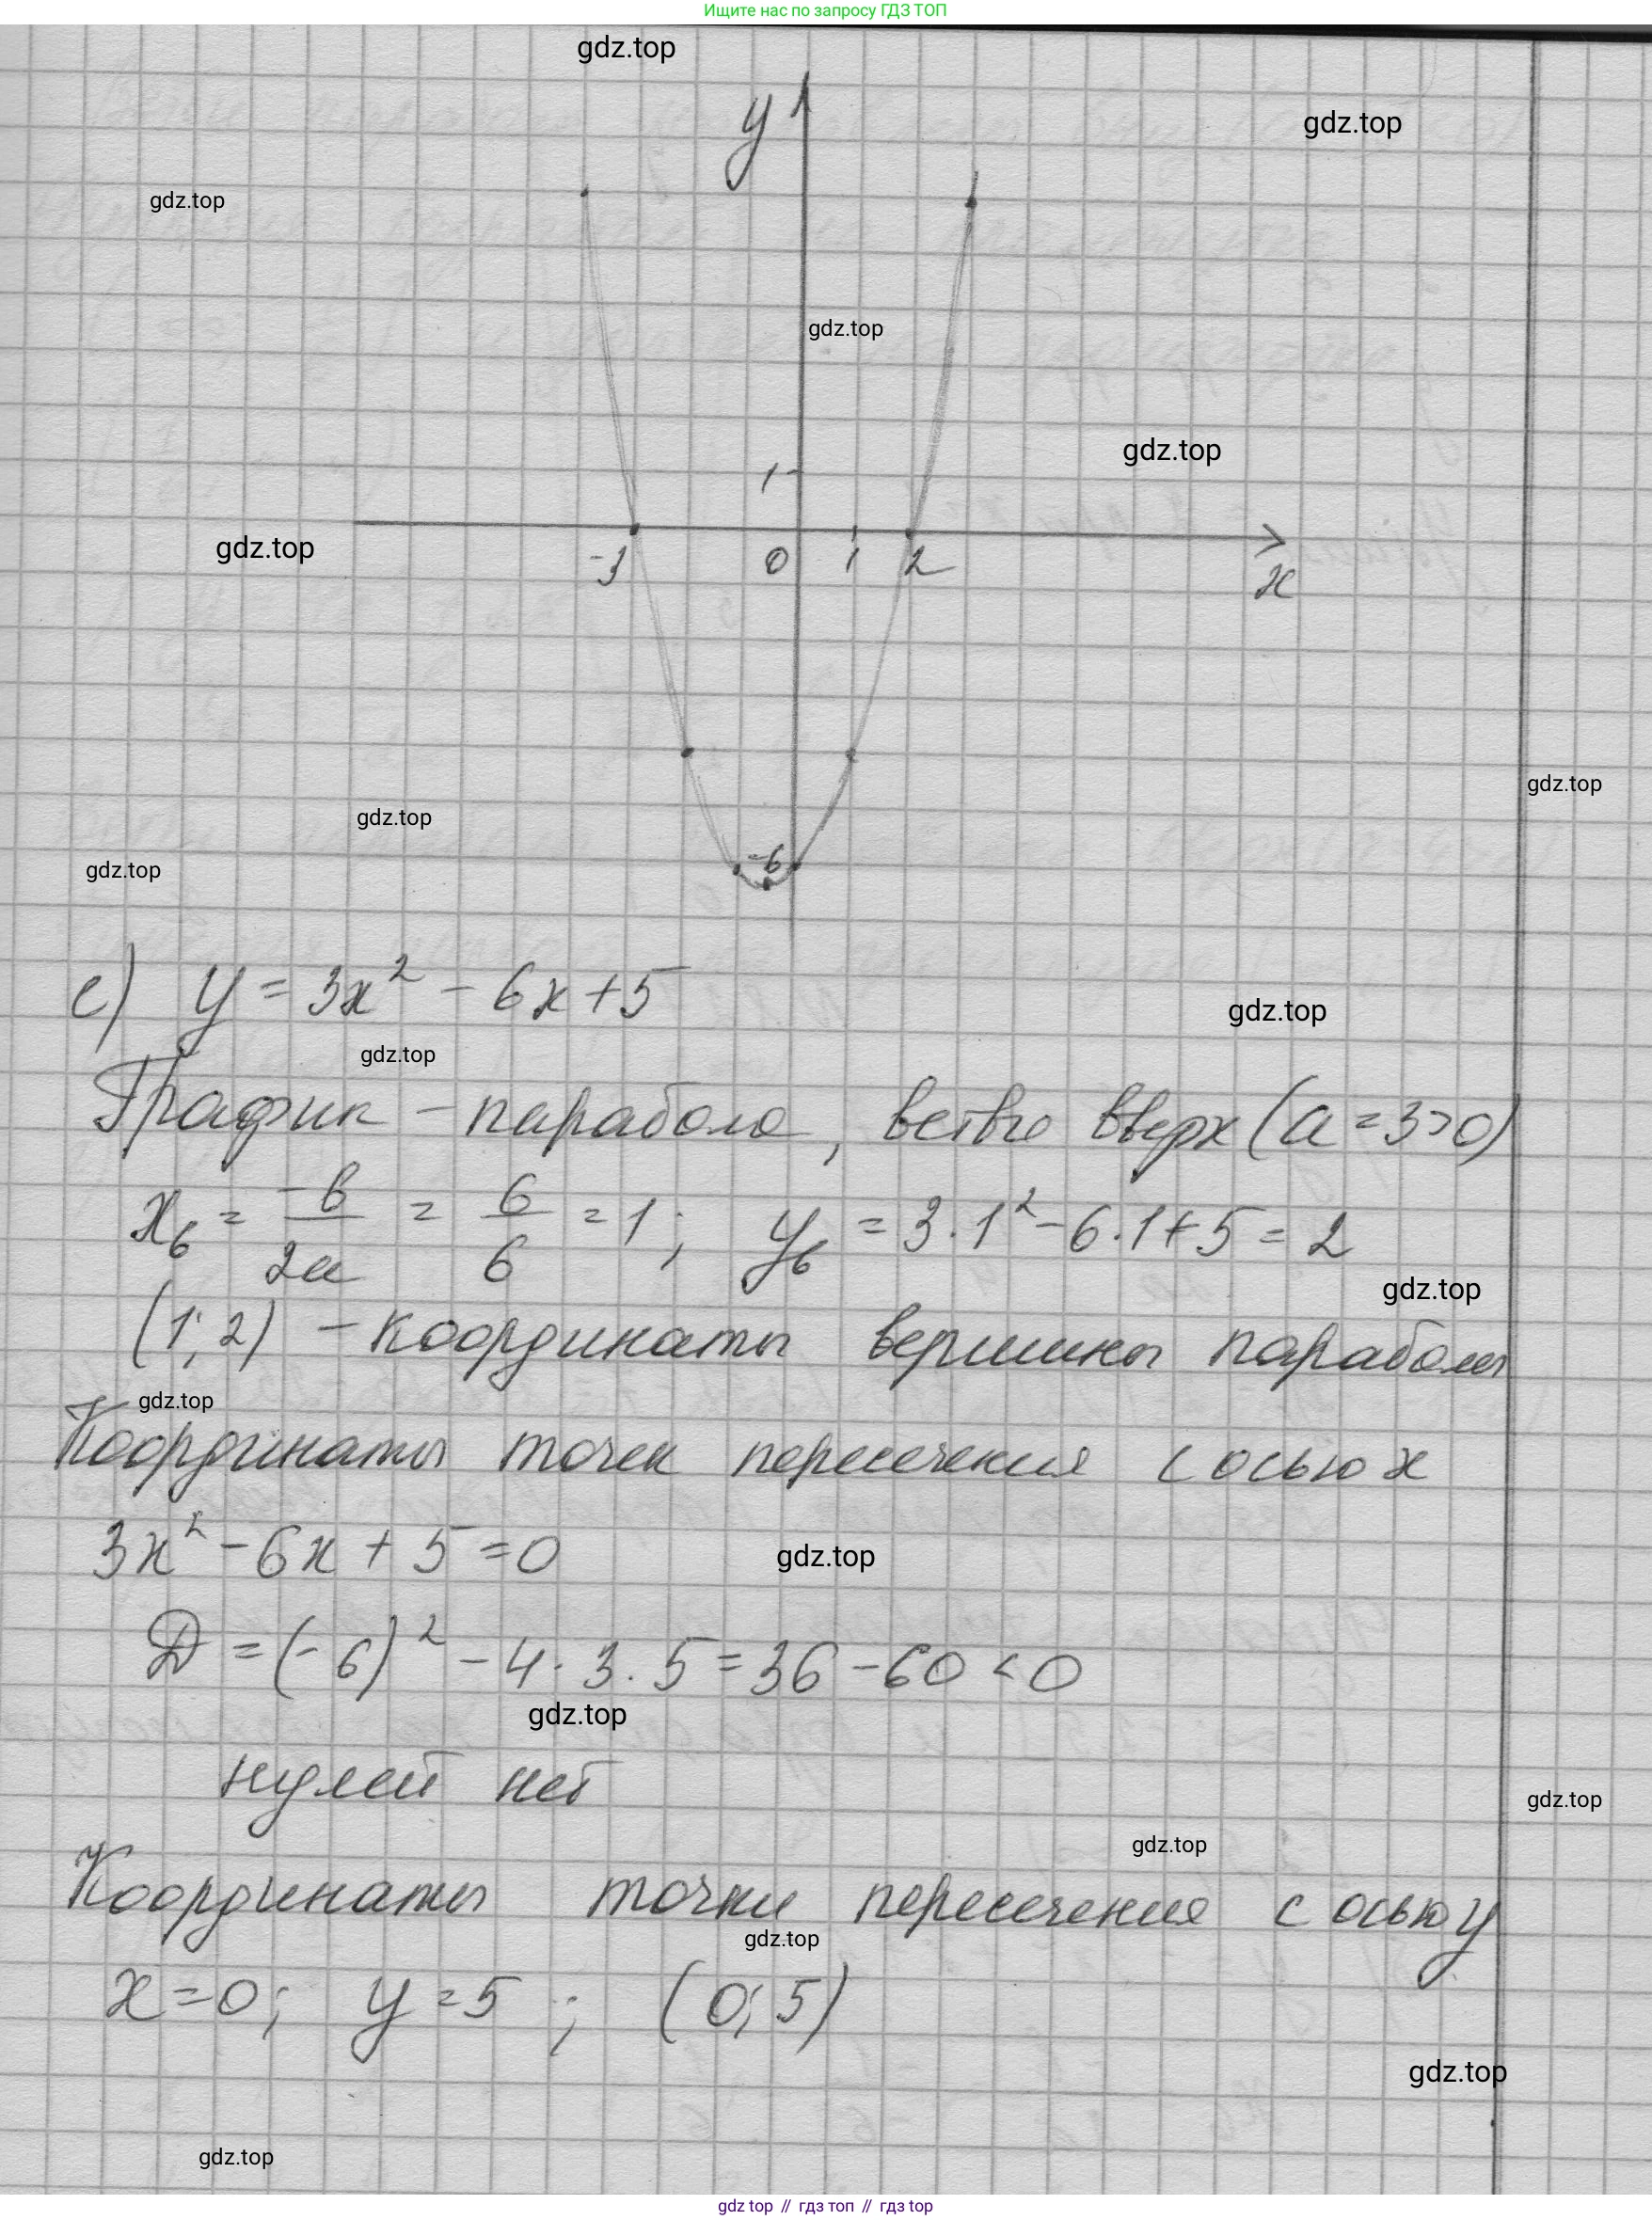 Ищите нас по запросу ГДЗ ТОП
gdz.top
y
gdz.top
gdz.top
gdz.top
1
gdz.top
gdz.top
-3 0 1 2
x
gdz.top
gdz.top
-6
gdz.top
е) y = 3x² - 6x + 5
gdz.top
gdz.top
График - парабола, ветви вверх (a = 3 > 0)
xв = -b/2a = 6/6 = 1; yв = 3 · 1² - 6 · 1 + 5 = 2
gdz.top
(1; 2) - координаты вершины параболы
gdz.top
Координаты точек пересечения с осью x
3x² - 6x + 5 = 0
gdz.top
D = (-6)² - 4 · 3 · 5 = 36 - 60 < 0
gdz.top
нулей нет
gdz.top
gdz.top
Координаты точки пересечения с осью y
gdz.top
x = 0; y = 5; (0; 5)
gdz.top
gdz.top
gdz top // гдз топ // гдз top